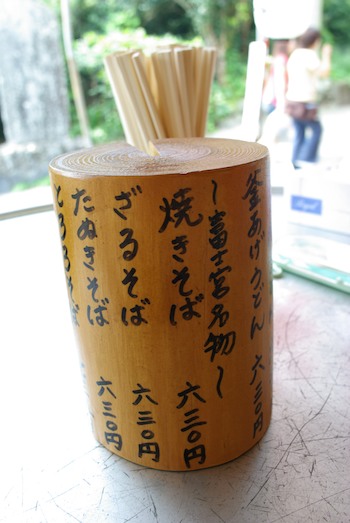 釜あげうどん 六三〇円
〜富士宮名物〜
焼きそば 六三〇円
ざるそば 六三〇円
たぬきそば 六三〇円
とろろそば